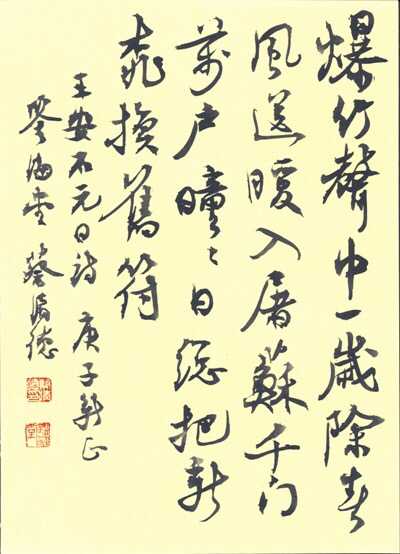 爆竹聲中一歲除春
風送暖入屠蘇千門
萬戶曈々日總把新
桃換舊符
王安石元日詩 庚子新正
海堂 蔡德